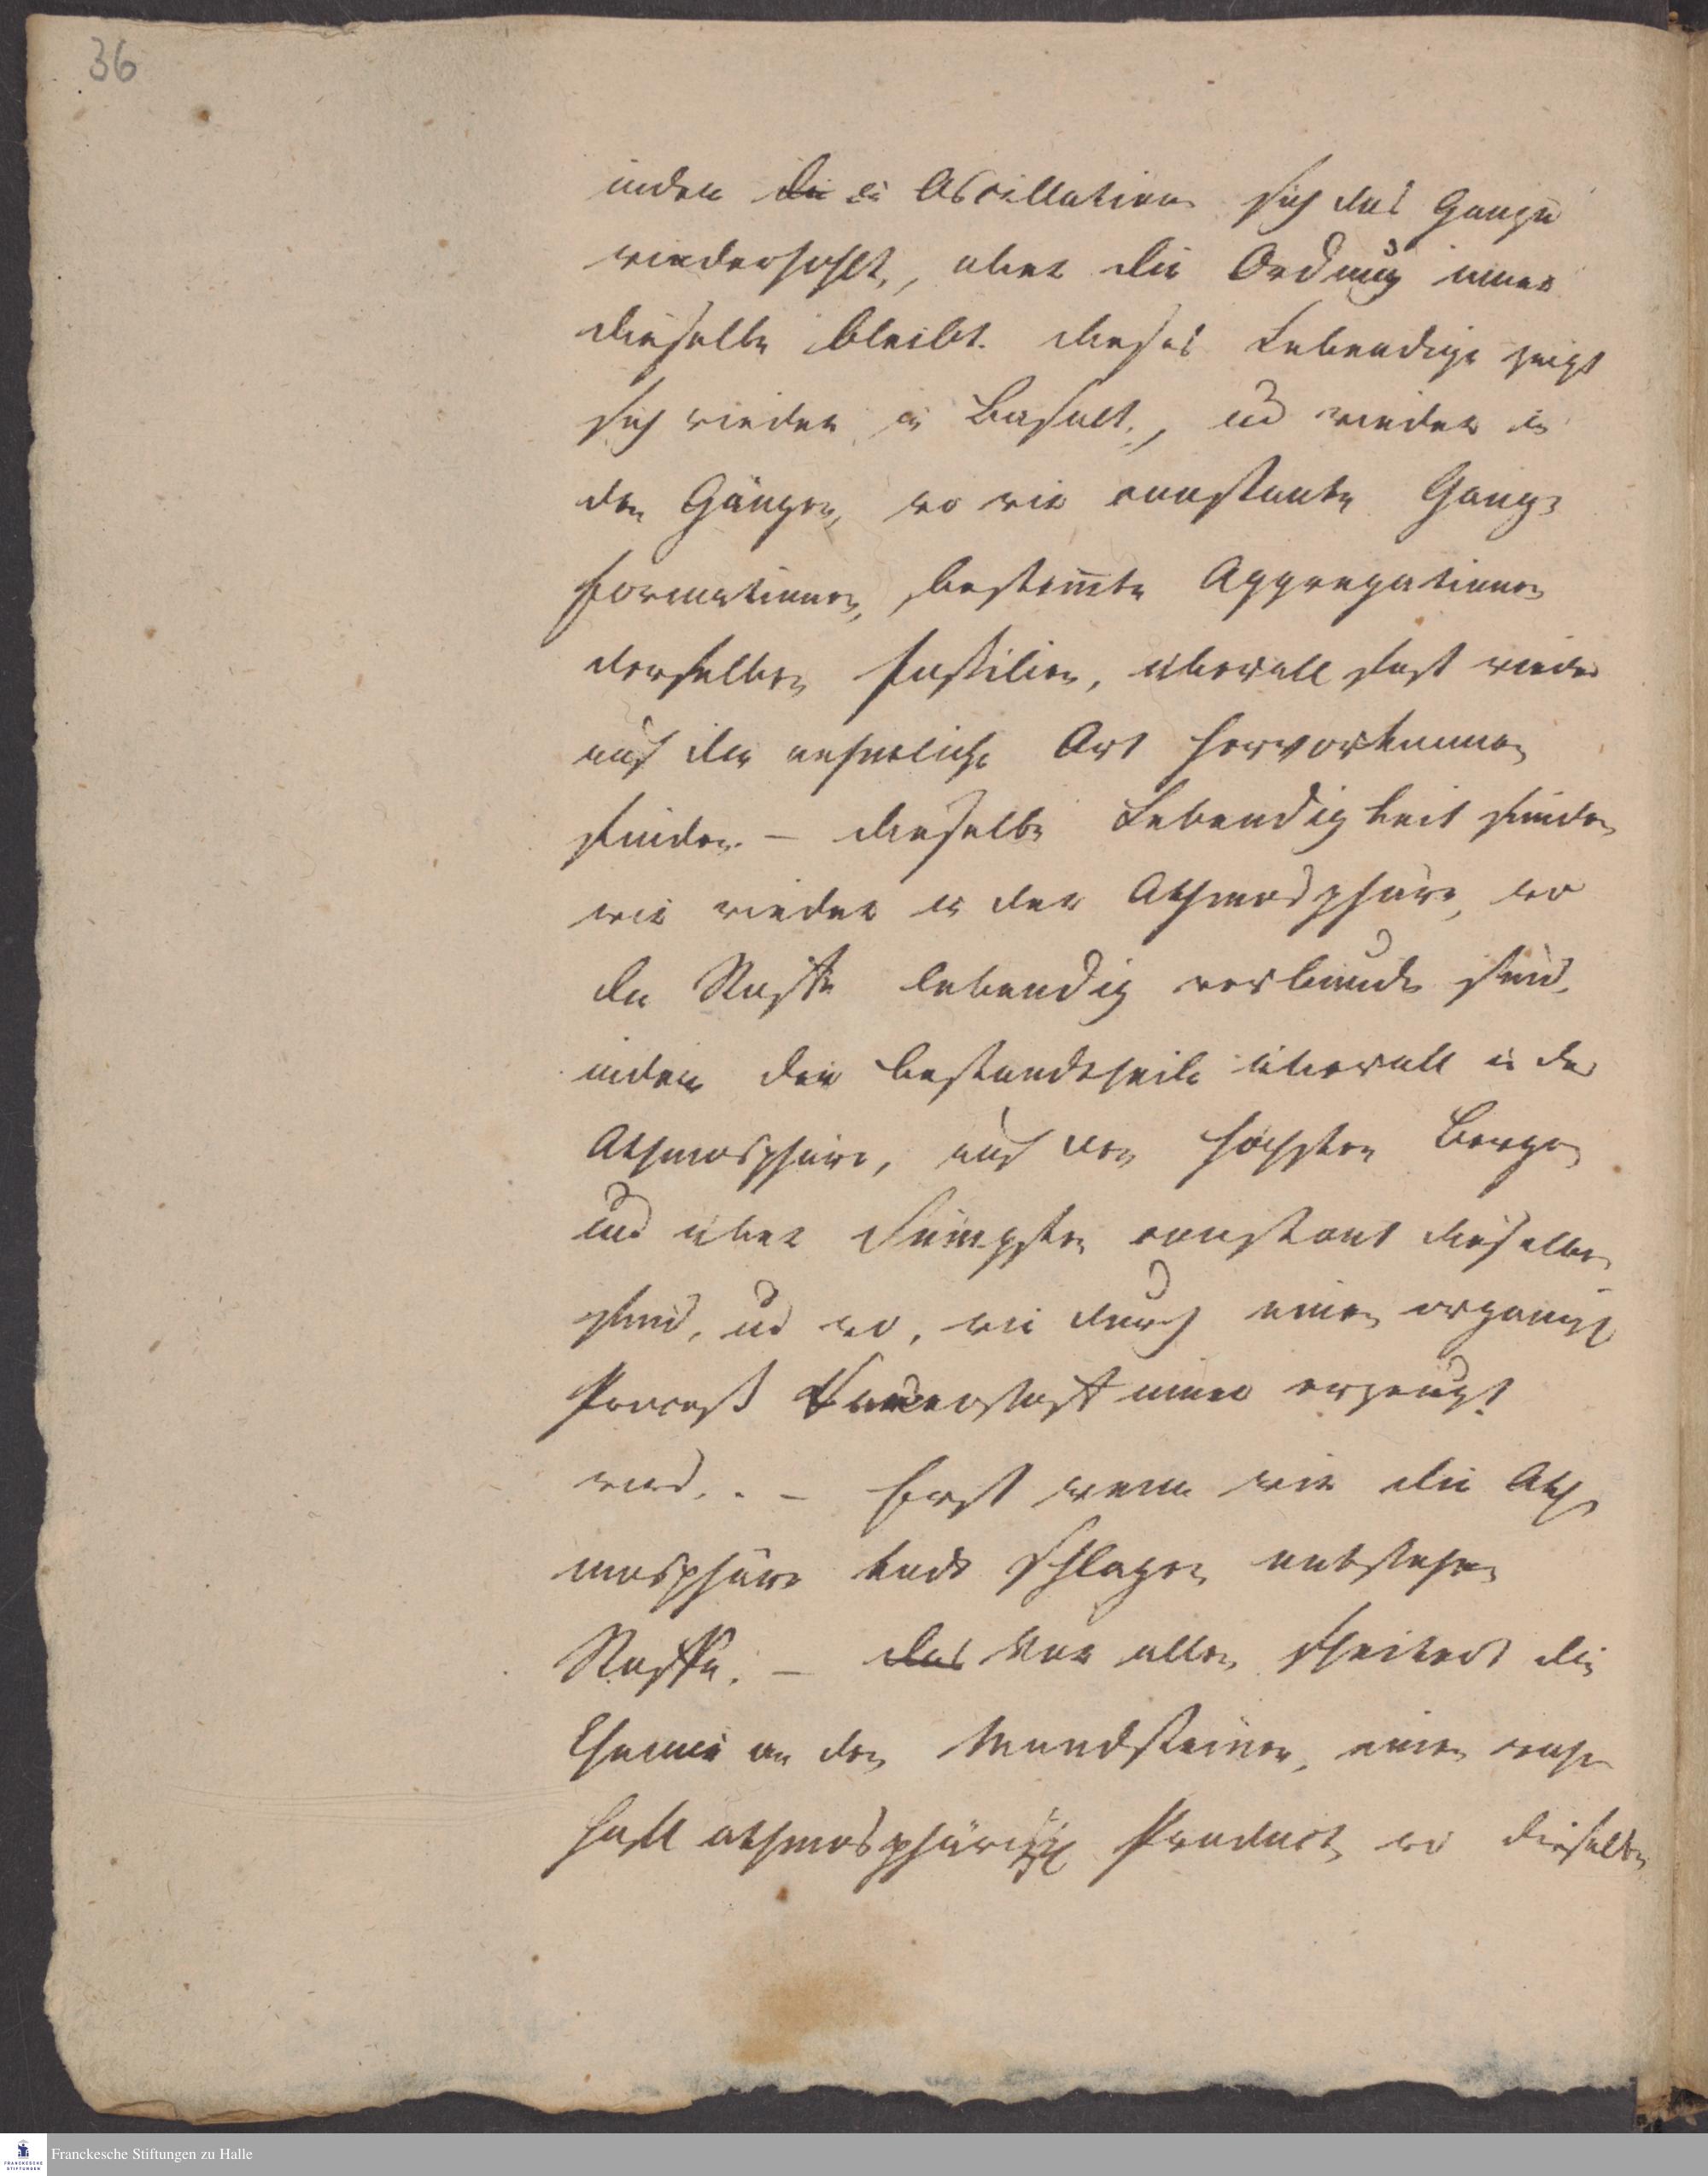 36
indem die in Oscillation sich das Ganze
wiederhohlt, aber die Ordnung immer
dieselbe bleibt. dieses Lebendige zeigt
sich wieder in Basalt, und wieder in
den Gängen, wo wir constante Gang-
formationen, bestim̅te Aggregationen
derselben Fossilien, überall fast wieder
auf die aehnliche Art hervorkommen
finden. – dieselbe Lebendigkeit finden
wir wieder in der Athmosphäre, wo
die Stoffe lebendig verbunden sind,
indem die Bestandtheile überall in der
Athmosphäre, auf den höchsten Bergen
und über Sümpfen constant dieselben
sind, und wo, wie durch einen organisch
Proceß Sauerstoff immer erzeugt
wird. . – Erst wenn wir die Ath-
mosphäre todt schlagen entstehen
Stoffe. – das Vor allen scheitert die
Chemie an den Mondsteinen, einen wahr
haft athmosphärisch Product, wo dieselben
Franckesche Stiftungen zu Halle